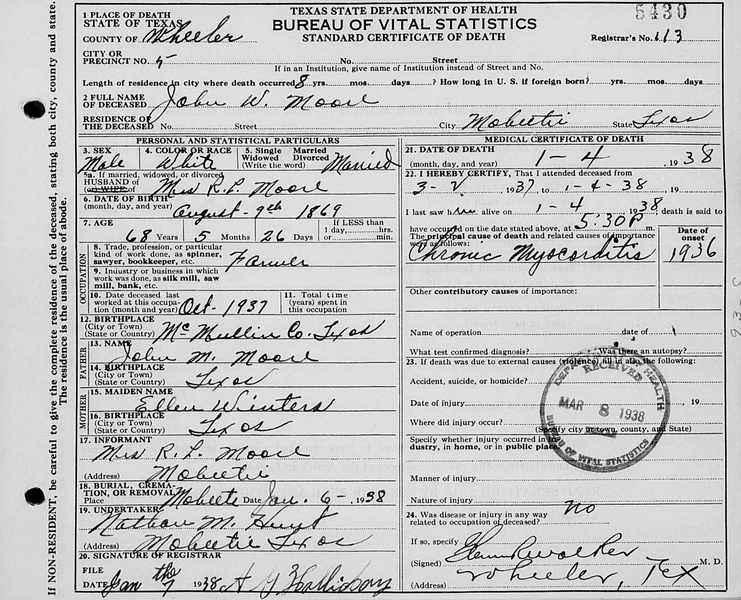 TEXAS STATE DEPARTMENT OF HEALTH
BUREAU OF VITAL STATISTICS
STANDARD CERTIFICATE OF DEATH
5430
Registrar's No. 113
1 PLACE OF DEATH
STATE OF TEXAS
COUNTY OF Wheeler
CITY OR
PRECINCT NO. 5 No. Street
If in an Institution, give name of Institution instead of Street and No.
Length of residence in city where death occurred 8 yrs. mos. days? How long in U. S. if foreign born? yrs. mos. days
2 FULL NAME
OF DECEASED John W. Moore
RESIDENCE OF
THE DECEASED No. Street City Mobeetie State Texas
PERSONAL AND STATISTICAL PARTICULARS
3. SEX 4. COLOR OR RACE 5. Single Married
Widowed Divorced
(Write the word)
Male White Married
5a. If married, widowed, or divorced
HUSBAND OF
(or WIFE of) Mrs R. L. Moore
6. DATE OF BIRTH
(month, day, and year) August - 9th 1869
7. AGE If LESS than
68 Years 5 Months 26 Days 1 day, hrs.
or min.
OCCUPATION
8. Trade, profession, or particular
kind of work done, as spinner,
sawyer, bookkeeper, etc. Farmer
9. Industry or business in which
work was done, as silk mill, saw
mill, bank, etc.
10. Date deceased last
worked at this occupa-
tion (month and year) Oct - 1937
11. Total time
(years) spent in
this occupation
12. BIRTHPLACE
(City or Town)
(State or Country) Mc Mullin Co. Texas
FATHER
13. NAME John M. Moore
14. BIRTHPLACE
(City or Town)
(State or Country) Texas
MOTHER
15. MAIDEN NAME
Ellen Winters
16. BIRTHPLACE
(City or Town)
(State or Country) Texas
17. INFORMANT
Mrs R. L. Moore
(Address) Mobeetie
18. BURIAL, CREMA-
TION, OR REMOVAL
Place Mobeetie Date Jan. 6 - 1938
19. UNDERTAKER
Nathan M. Hunt
(Address) Mobeetie Texas
20. SIGNATURE OF REGISTRAR
FILE
DATE Jan the 7 1938
MEDICAL CERTIFICATE OF DEATH
21. DATE OF DEATH
(month, day, and year) 1 - 4 , 1938
22. I HEREBY CERTIFY, That I attended deceased from
1937 to 1-4-38 , 19
I last saw him alive on 1 - 4 1938, death is said to
have occurred on the date stated above, at 5:30P m.
The principal cause of death and related causes of importance
were as follows:
Date of
onset
Chronic Myocorditis 1936
Other contributory causes of importance:
Name of operation date of
What test confirmed diagnosis? Was there an autopsy?
23. If death was due to external causes (violence) fill in also the following:
Accident, suicide, or homicide?
Date of injury , 19
Where did injury occur?
(Specify city or town, county, and State)
Specify whether injury occurred in
dustry, in home, or in public place
Manner of injury
Nature of injury
24. Was disease or injury in any way
related to occupation of deceased? no
If so, specify
(Signed) Glenn R Walker M. D.
(Address) Wheeler, Tex
RECEIVED
MAR 8 1938
BUREAU OF VITAL STATISTICS
If NON-RESIDENT, be careful to give the complete residence of the deceased, stating both city, county and state.
The residence is the usual place of abode.